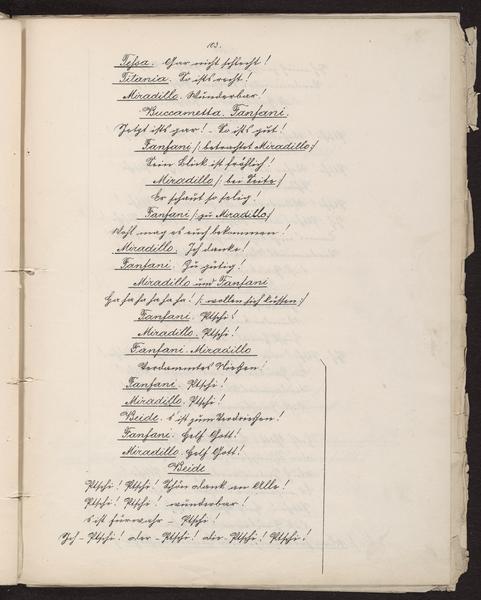 103.
Tessa. Gar nicht schlecht!
Titania. So ists recht!
Miradillo. Wunderbar!
Buccametta. Fanfani.
Jetzt ists gar! So ists gut!
Fanfani /: betrachtet Miradillo :/
Sein Blick ist fröhlich!
Miradillo /: bei Seite :/
Er schaut so selig!
Fanfani /: zu Miradillo :/
Wohl mag es euch bekommen!
Miradillo. Ich danke!
Fanfani. Zu gütig!
Miradillo und Fanfani
Ha ha ha ha ha ha! /: wollen sich küssen :/
Fanfani. Ptschi!
Miradillo. Ptschi!
Fanfani. Miradillo
Verdammtes Niesen!
Fanfani. Ptschi!
Miradillo. Ptschi!
Beide. s'ist zum Verdriessen!
Fanfani. Helf Gott!
Miradillo. Helf Gott!
Beide
Ptschi! Ptschi! Schön dank an Alle!
Ptschi! Ptschi! wunderbar!
s'ist fürwahr - Ptschi!
Ich - Ptschi! oder - Ptschi! der - Ptschi! Ptschi!